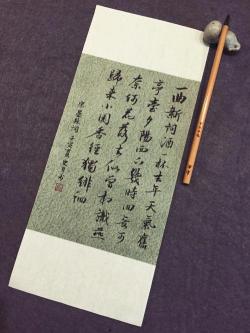 一曲新詞酒一杯去年天氣舊
亭臺夕陽西下幾時回無可
奈何花落去似曾相識燕
歸來小園香徑獨徘徊
宋晏殊詞